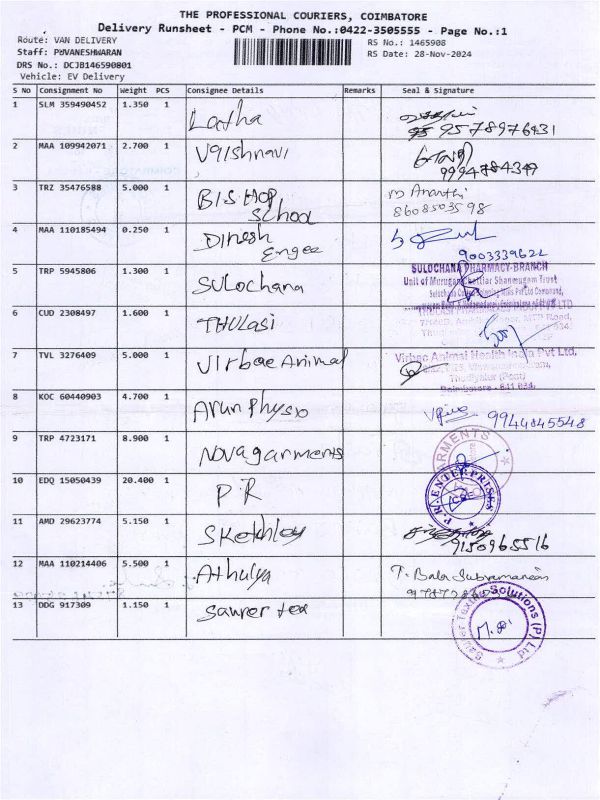 THE PROFESSIONAL COURIERS, COIMBATORE
Delivery Runsheet - PCM - Phone No.:0422-3505555 - Page No.:1
Route: VAN DELIVERY
RS No.: 1465908
Staff: PUVANESHWARAN
RS Date: 28-Nov-2024
DRS No.: DCJB146590801
Vehicle: EV Delivery
S No Consignment No Weight PCS Consignee Details Remarks Seal & Signature
1 SLM 359490452 1.350 1 Latha
9578976431
2 MAA 109942071 2.700 1 Vaishnavi
9994784349
3 TRZ 35476588 5.000 1 BISHOP School
M Ananthi
8608503598
4 MAA 110185494 0.250 1 Dinesh Engee
9003339622
5 TRP 5945806 1.300 1 Sulochana
SULOCHANA PHARMACY-BRANCH
Unit of Murugan Chettiar Shanmugam Trust
6 CUD 2308497 1.600 1 THULASI
7 TVL 3276409 5.000 1 Virbac Animal
Virbac Animal Health India Pvt Ltd,
Thudiyalur (Post)
Coimbatore - 641 034.
8 KOC 60440903 4.700 1 Arun Physio
9944845548
9 TRP 4723171 8.900 1 Nova garments
GARMENTS
10 EDQ 15050439 20.400 1 P R
P.R. ENTERPRISES
11 AMD 29623774 5.150 1 Sketchley
9150965516
12 MAA 110214406 5.500 1 Athulya
T. Bala Subramanian
13 DDG 917309 1.150 1 Saurer tex
Saurer Texing Solutions (P) Ltd